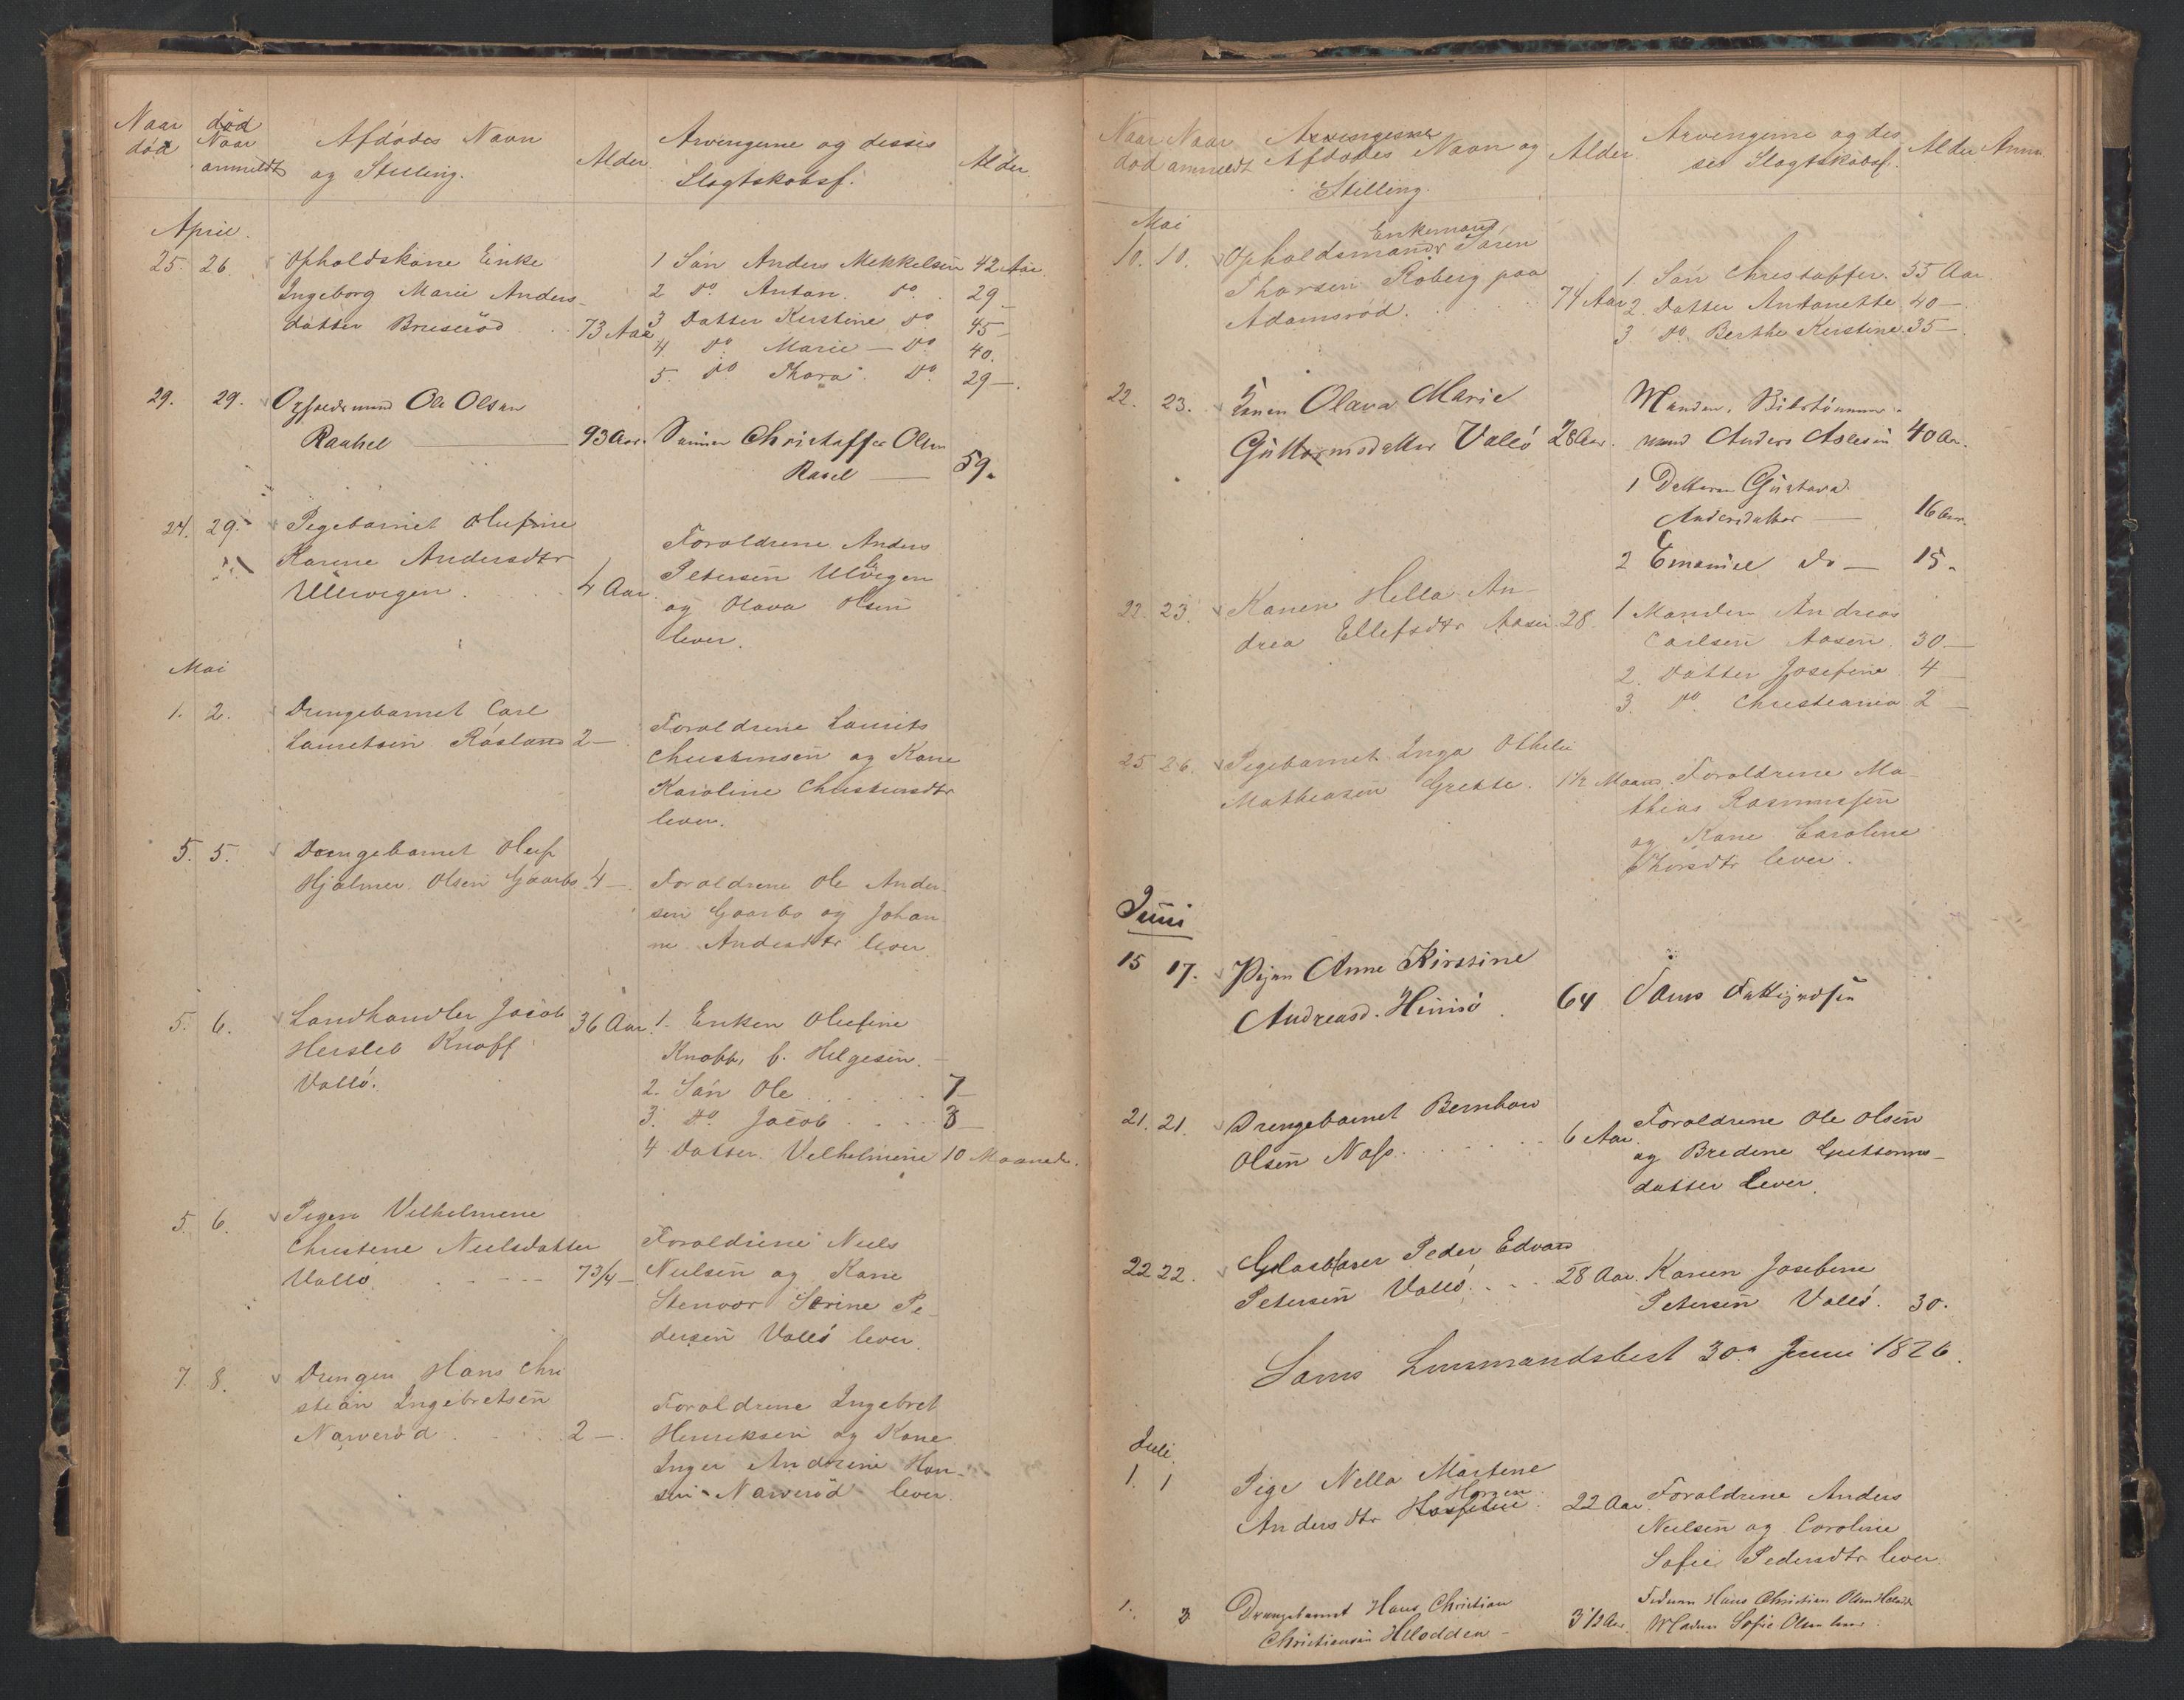 Naar død
død Naar anmeldt
Afdødes Navn og Stilling.
Alder
Arvingerne og disses Slægtskabsf.
Alder.
April.
25. 26. Opholdskone Enke
Ingeborg Marie Anders-
datter Bruserød . . 73 Aar
1 Søn Anders Mekkelsen 42 Aar
2 do. Anton. do. 29 —
3 Datter Kirstine do. 45 —
4. do. Marie — do. 40.
5. do. Thora. do. 29 —.
29. 29. Opholdsmand Ole Olsen
Raahel — 93 Aar.
Sønnen Christoffer Olsen
Rael — 59.
24. 29. Pigebarnet Olufine
Karine Andersdtr
Ullevigen . . . 4 Aar.
Forældrene Anders
Petersen Ulvigen
og Olava Olsen
lever.
Mai
1. 2. Drengebarnet Carl
Lauretsen Råsland 2 —
Forældrene Laurits
Christensen og Kone
Karoline Christensdtr
lever.
5. 5. Drengebarnet Oluf
Hjalmer Olsen Gaarbo 4 —.
Forældrene Ole Ander-
sen Gaarbo og Johan
ne Andersdtr lever.
5. 6. Landhandler Jacob 36 Aar.
Hersleb Knoff
Valló.
1. Enken Olufine
Knoff, f. Helgesen. —
2. Søn Ole . . . . . 7 —
3. do. Jacob . . . . 3 —
4. Datter. Velhelmine 10 Maaned.
5. 6. Pigen Vilhelmine
Christene Neelsdatter
Valló . . . . 7 3/4 —.
Forældrene Neels
Neelsen og Kone
Stenvor Serine Pe-
dersen Valló lever.
7. 8. Drengen Hans Chri
stian Ingebretsen
Narverød . . . . 2 —.
Forældrene Ingebret
Henriksen og Kone
Inger Andrine Han-
sen Narverød lever.
Naar død
Naar anmeldt
Arvingernes
Afdødes Navn og
Stilling.
Alder.
Arvingerne og des
ses Slagtskabsf.
Alder Anm
Mai
10. 10. Opholdsmand Enkemand, Søren
Thorsen Roberg paa
Adamsrød. . . 74 Aar
1. Søn Christoffer. 55 Aar.
2. Datter Antonette 40 —
3 do. Berthe Kirstine 35 —.
22. 23. Konen Olava Marie
Guttormsdatter Valló 28 Aar.
Manden,
mand Anders Aslesen 40 Aar.
1 Datteren Gustava
Andersdatter — 16 Aar.
2 Emanuel do — 15.
22. 23. Konen Hella An-
drea Ellefsdtr Aasen. 28.
1 Manden Andreas
Carlsen Aasen. 30 —
2. Datter Josefine 4 —
3. do. Christiania. 2 —
25 26. Pigebarnet Inga Othelie
Mathiasen Grette. 1 1/2 Maaned.
Forældrene Ma-
thias Rasmussen
og Kone Caroline
Thorsdtr lever.
Juni
15 17. Pigen Anne Kirstine
Andreasd. Himsö . 64
21. 21. Drengebarnet Bernhard
Olsen Næss. . . . . 6 Aar.
Forældrene Ole Olsen
og Bredine Guttorms-
datter lever.
22 22. Glasblaser Peder Edvard
Petersen Valló. . . . 28 Aar.
Konen Josefine
Petersen Valló. 30.
Sems Lensmandsbest 30te Juni 1876.
Juli
1. 1 Pige Nella Martene
Andersdtr Horgen. 22 Aar.
Forældrene Anders
Neelsen og Caroline
Sofie Pedersdtr lever.
1. 3 Drengebarnet Hans Christian
Christiansen Husodden — 3 1/2 Aar.
Faderen Hans Christian Olsen
Moderen Sofie Olsen lever.